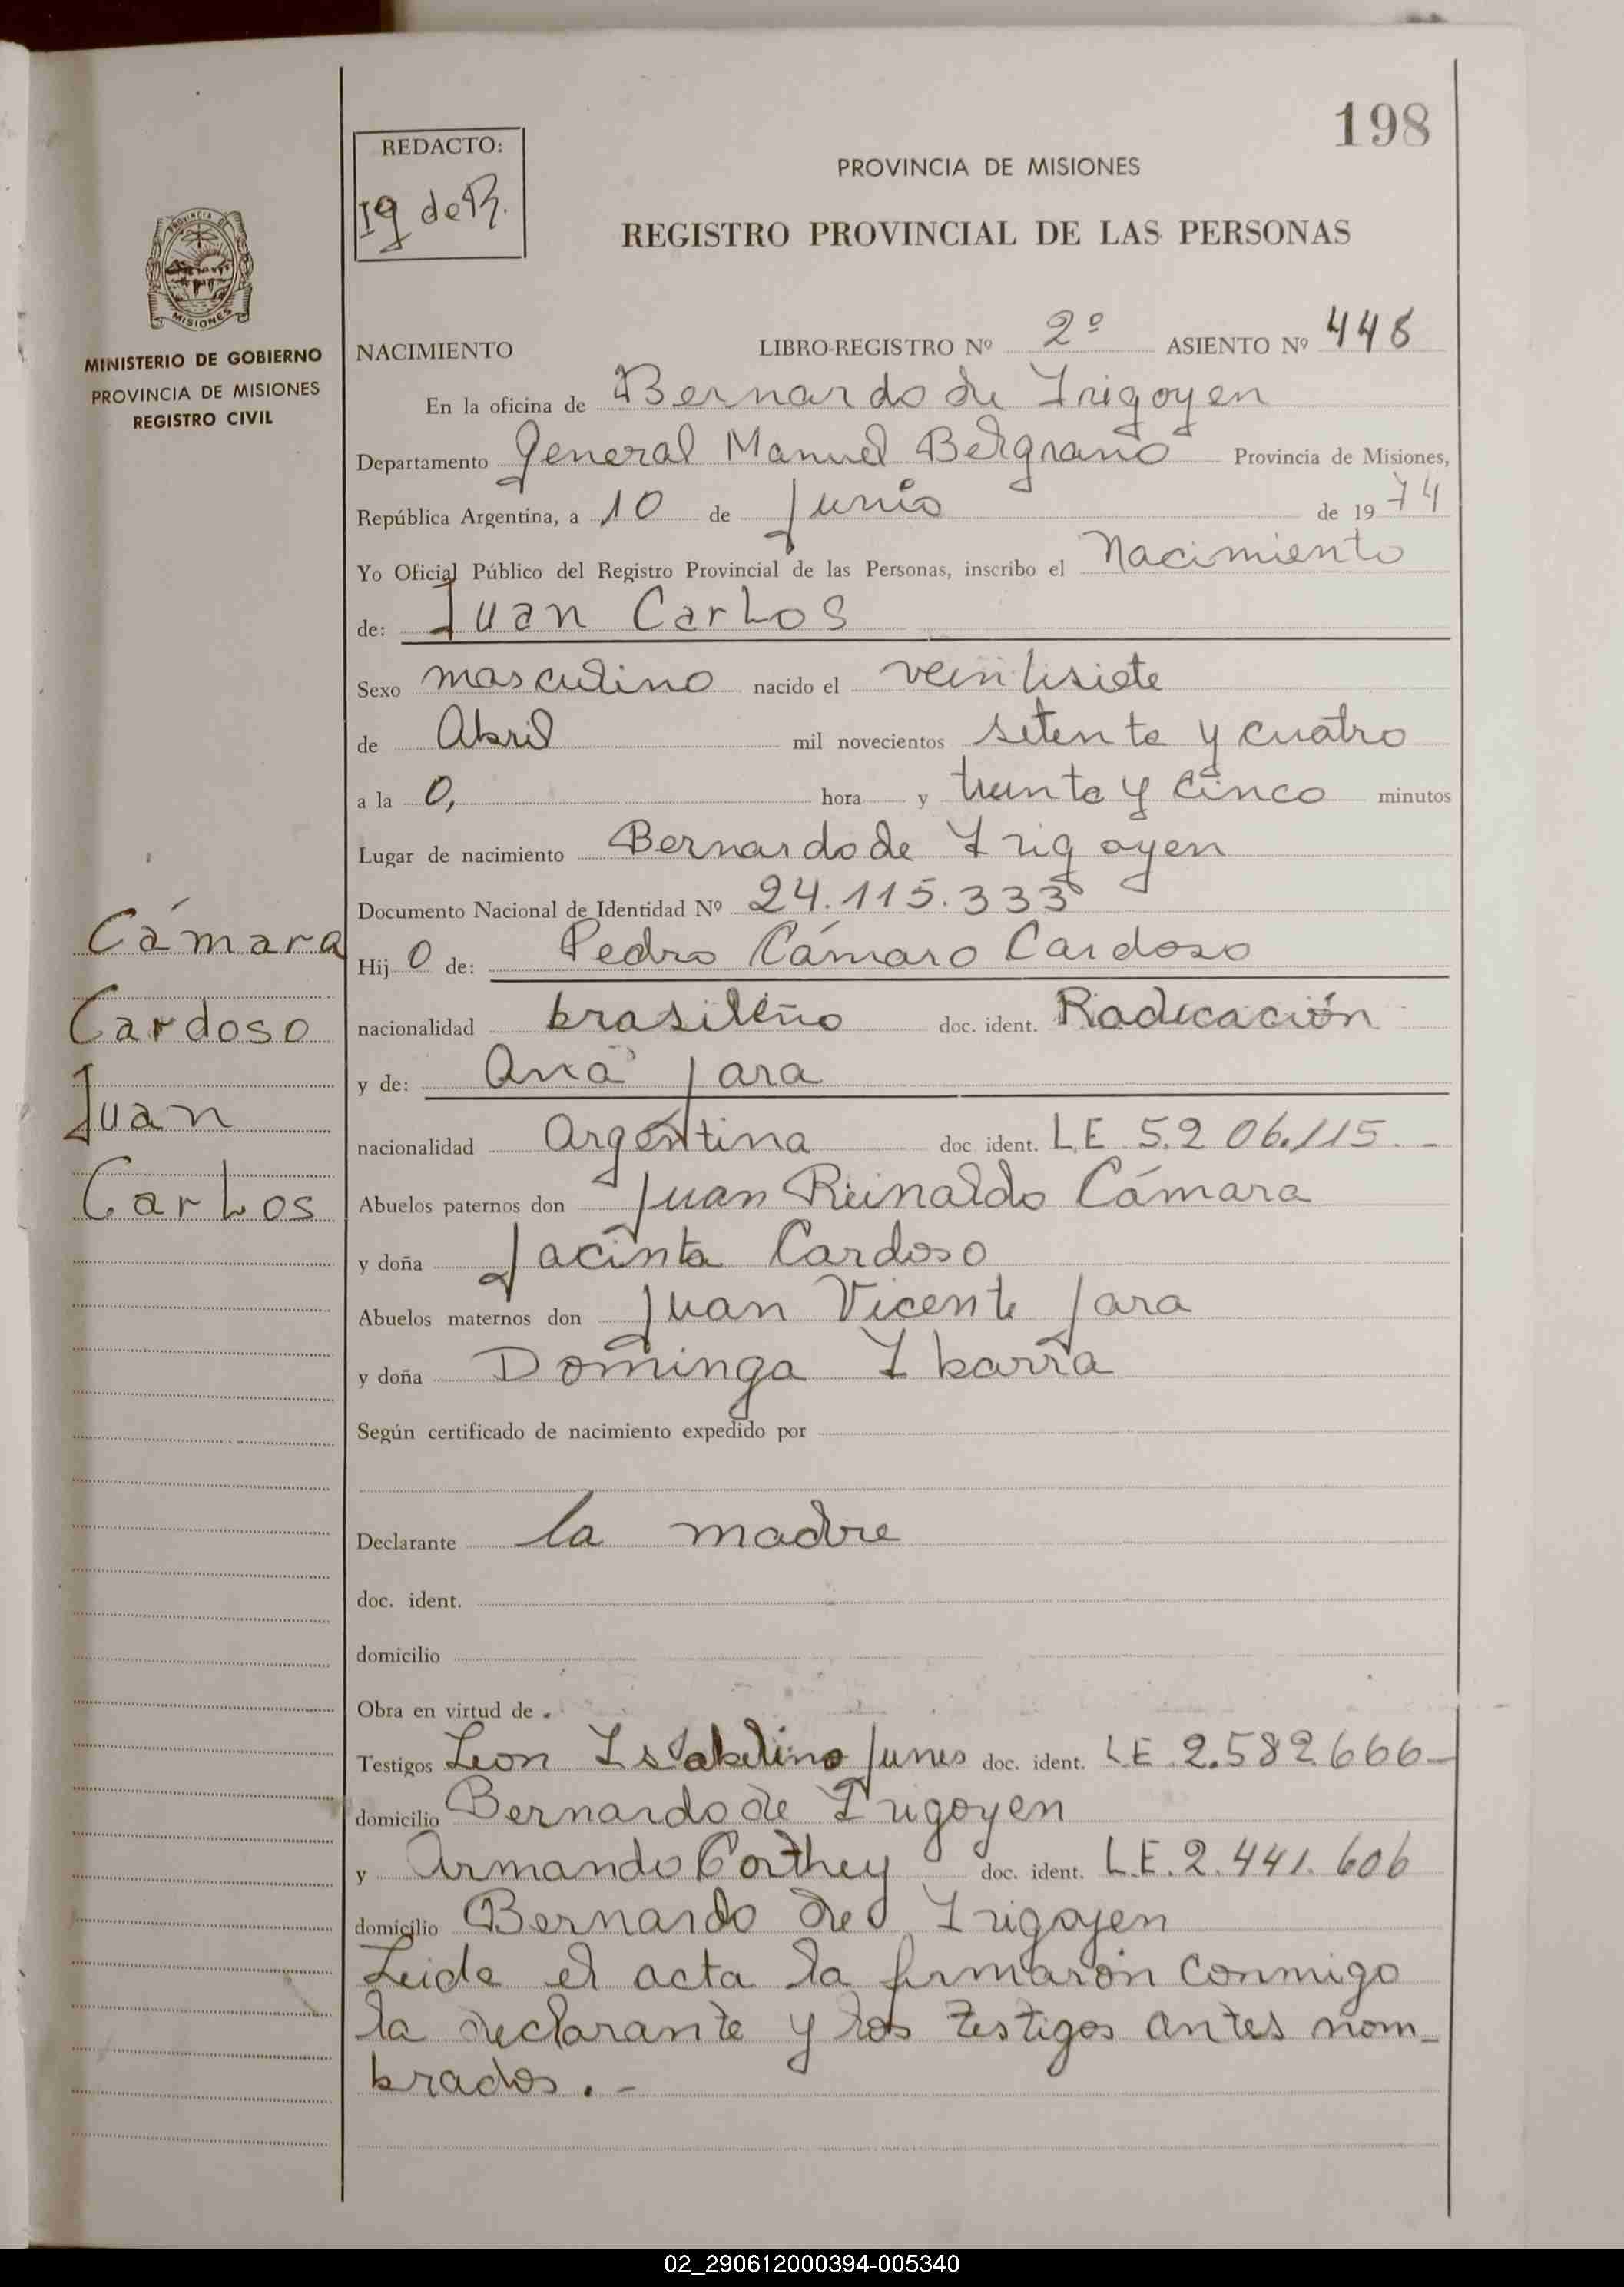 198
REDACTO:
Ig de R.
PROVINCIA DE MISIONES
REGISTRO PROVINCIAL DE LAS PERSONAS
PROVINCIA DE
MISIONES
MINISTERIO DE GOBIERNO
PROVINCIA DE MISIONES
REGISTRO CIVIL
NACIMIENTO LIBRO-REGISTRO Nº 2º ASIENTO Nº 448
En la oficina de Bernardo de Irigoyen
Departamento General Manuel Belgrano Provincia de Misiones,
República Argentina, a 10 de Junio de 1974
Yo Oficial Público del Registro Provincial de las Personas, inscribo el Nacimiento
de: Juan Carlos
Sexo masculino nacido el veintisiete
de Abril mil novecientos setenta y cuatro
a la 0, hora y treinta y cinco minutos
Lugar de nacimiento Bernardo de Irigoyen
Documento Nacional de Identidad Nº 24.115.333
Cámara
Cardoso
Juan
Carlos
Hijo de: Pedro Cámaro Cardoso
nacionalidad brasileño doc. ident. Radicación
y de: Ana Jara
nacionalidad Argentina doc ident. LE 5.206.115.-
Abuelos paternos don Juan Reinaldo Cámara
y doña Jacinta Cardoso
Abuelos maternos don Juan Vicente Jara
y doña Dominga Ibarra
Según certificado de nacimiento expedido por
Declarante la madre
doc. ident.
domicilio
Obra en virtud de
Testigos Leon Isabelino Junes doc. ident. LE 2.582.666-
domicilio Bernardo de Irigoyen
y Armando Corthey doc. ident. L.E. 2.441.606
domicilio Bernardo de Irigoyen
Leida el acta la firmaron conmigo
la declarante y los testigos antes nom-
brados.-
02_290612000394-005340